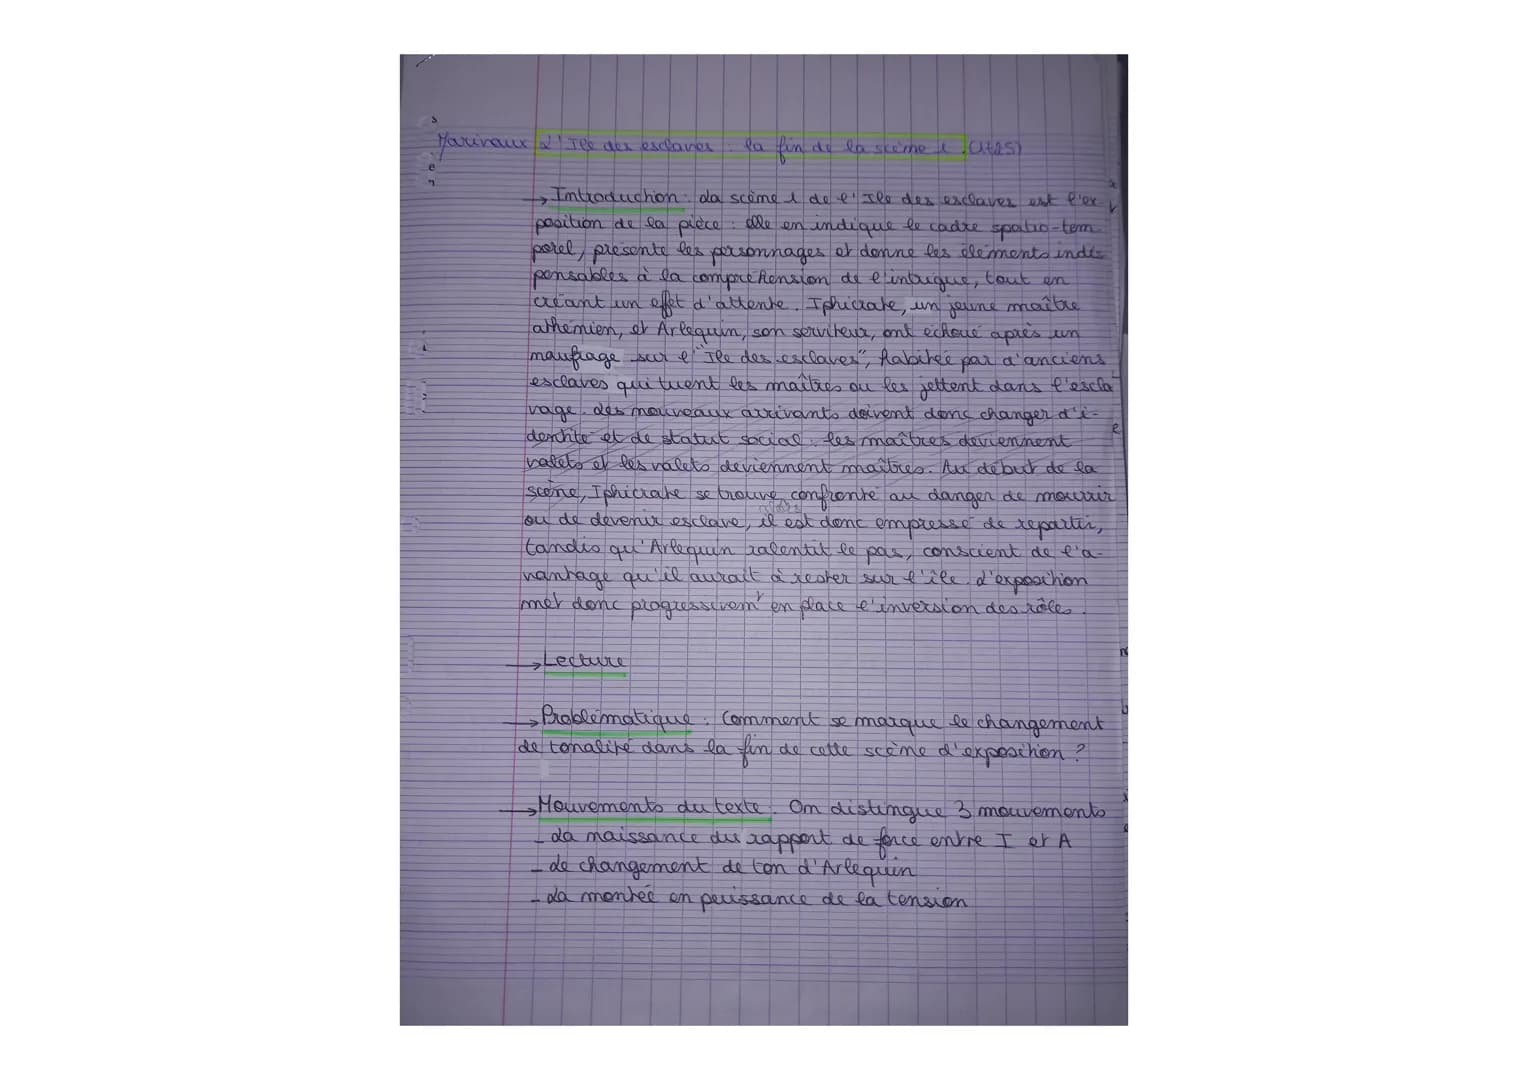 Marivaux L'Ile des esclaves : la fin de la scène 1
→ Introduction : La scène 1 de l'Ile des esclaves est l'ex
position de la pièce : elle en indique le cadre spatio-tem
porel, présente les personnages et donne les éléments indis
pensables à la compréhension de l'intrigue, tout en
créant un effet d'attente. Iphicrate, un jeune maître
athénien, et Arlequin, son serviteur, ont échoué après un
naufrage sur l'"Ile des esclaves", habitée par d'anciens
esclaves qui tuent les maîtres ou les jettent dans l'escla
vage. Les nouveaux arrivants doivent donc changer d'i-
dentité et de statut social : les maîtres deviennent
valets et les valets deviennent maîtres. Au début de la
scène, Iphicrate se trouve confronté au danger de mourir
ou de devenir esclave, il est donc empressé de repartir,
tandis qu'Arlequin ralentit le pas, conscient de l'a-
vantage qu'il aurait à rester sur l'île. L'exposition
met donc progressivemt en place l'inversion des rôles.
→ Lecture
→ Problématique : Comment se marque le changement
de tonalité dans la fin de cette scène d'exposition ?
→ Mouvements du texte : On distingue 3 mouvements
- La naissance du rapport de force entre I et A
- Le changement de ton d'Arlequin
- La montée en puissance de la tension